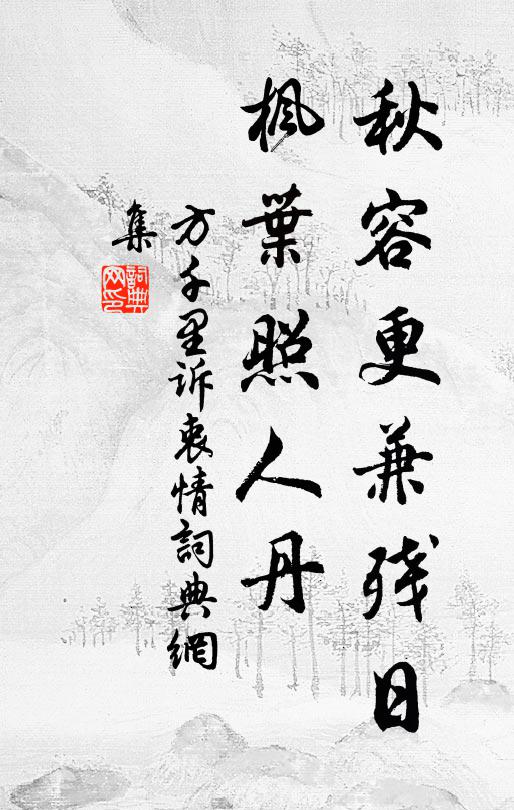 秋容更兼残日
枫葉照人丹
方千里诉衷情詞典網
集
詞典
网印